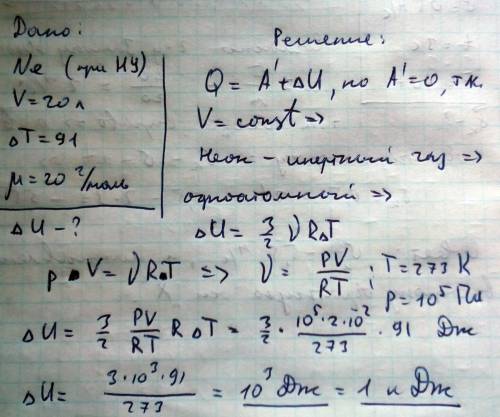 Дано:
Решение:
Ne (при НУ)
V = 20 л
ΔT = 91
μ = 20 г/моль
ΔU - ?
Q = A' + ΔU, но A' = 0, т.к.
V = const =>
Неон - инертный газ =>
одноатомный =>
ΔU = 3/2 ν R ΔT
p V = ν R T => ν = PV/RT ; T = 273 К
p = 10⁵ Па
ΔU = 3/2 PV/RT R ΔT = 3/2 · 10⁵·2·10⁻²/273 · 91 Дж
ΔU = 3·10³·91/273 = 10³ Дж = 1 кДж